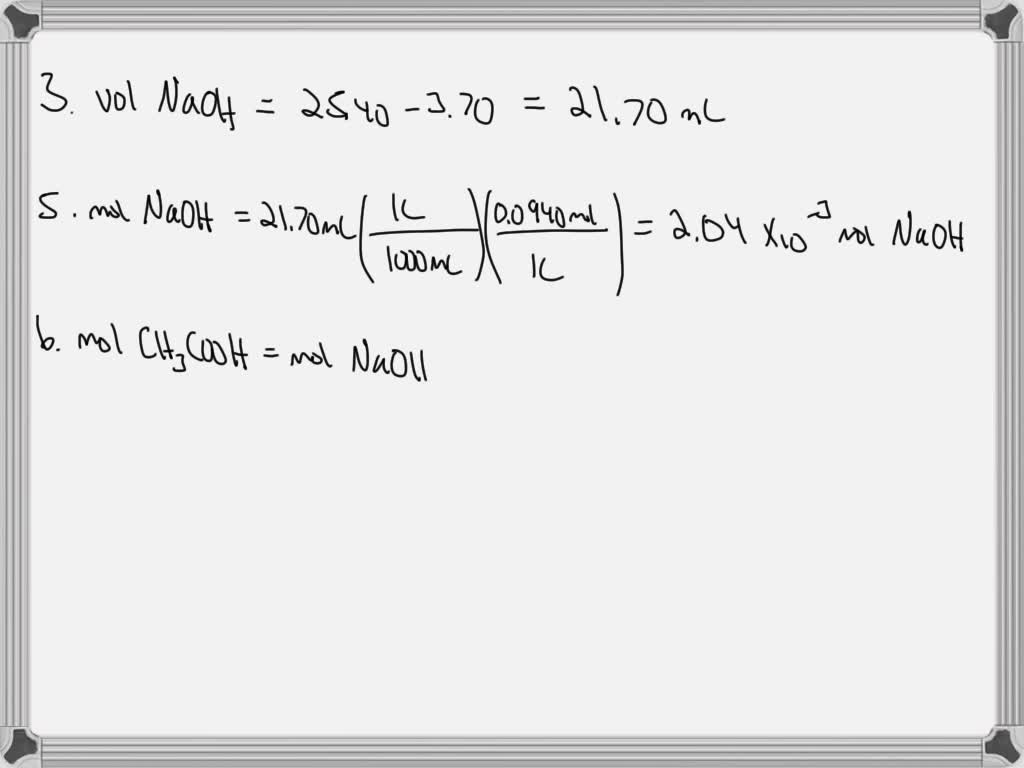 3. vol NaOH = 25.40 - 3.70 = 21.70 mL
5. mol NaOH = 21.70mL (1L / 1000mL)(0.0940mol / 1L) = 2.04 x10⁻³ mol NaOH
6. mol CH₃COOH = mol NaOH